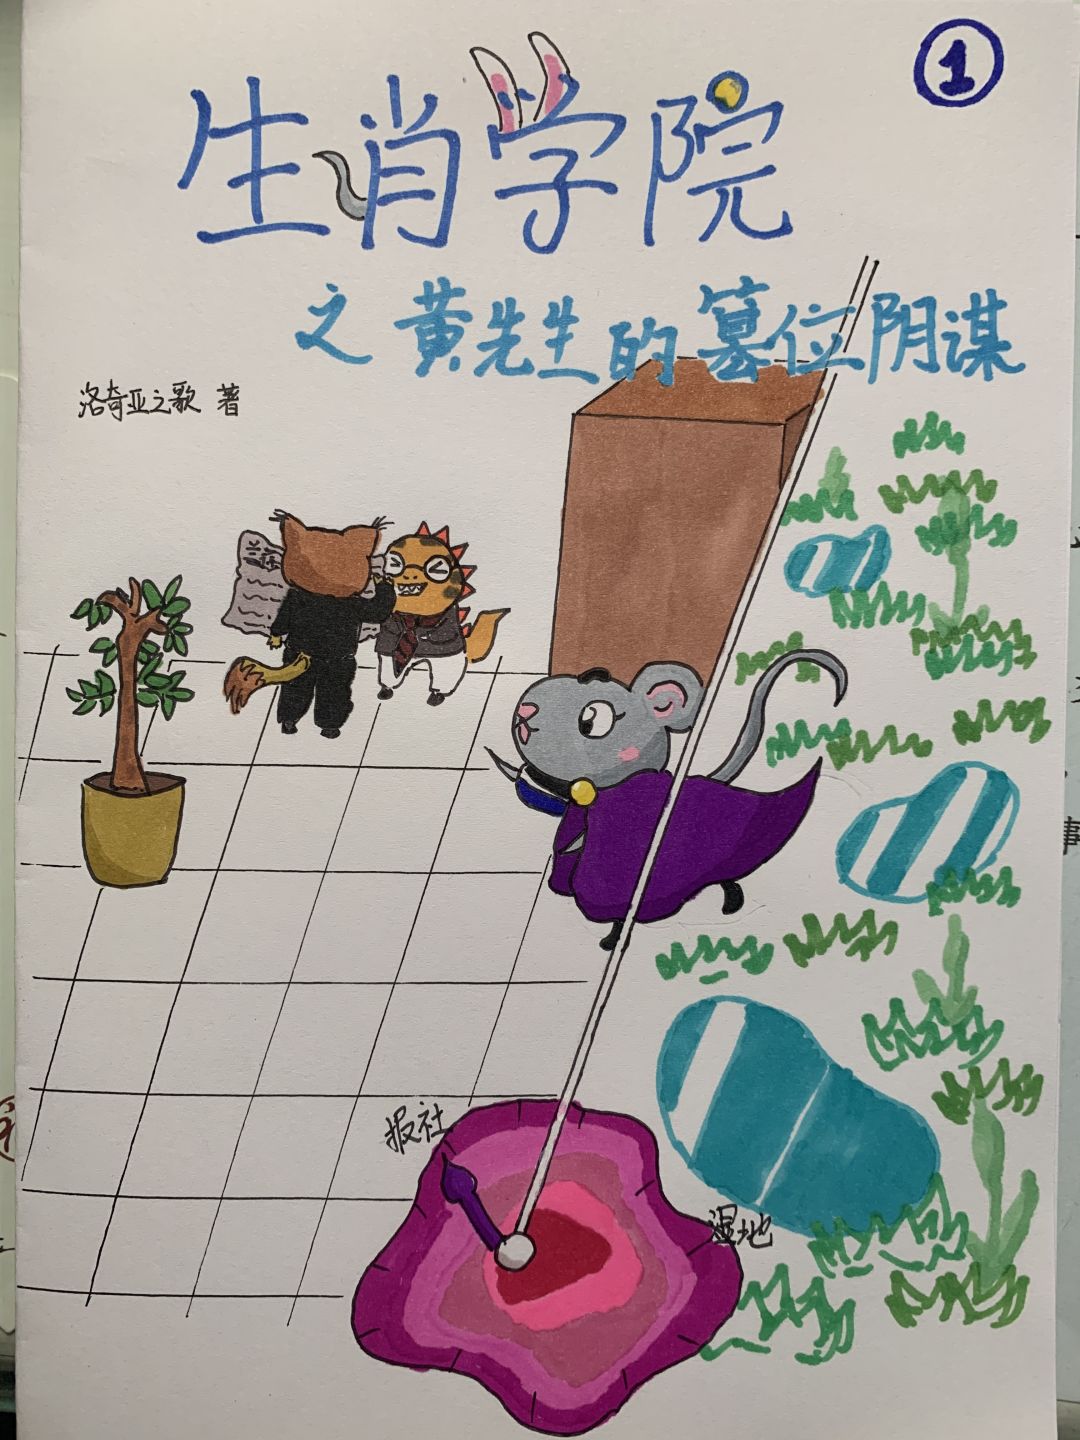 1
生肖学院
之黄先生的篡位阴谋
洛奇亚之歌 著
报社
湿地
事